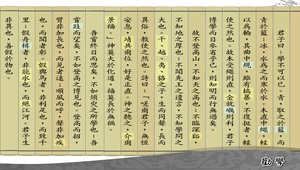 君子曰：學不可以已。
青、取之於藍，而
青於藍；冰、水為之，而寒於水。木直中繩，輮
以為輪，其曲中規，雖有槁暴，不復挺者，輮
使之然也。故木受繩則直，金就礪則利，君子
博學而日參省乎己，則知明而行無過矣。
故不登高山，不知天之高也；不臨深谿，
不知地之厚也；不聞先王之遺言，不知學問之
大也。干、越、夷、貉之子，生而同聲，長而
異俗，教使之然也。詩曰：「嗟爾君子，無恆
安息。靖共爾位，好是正直。神之聽之，介爾
景福。」神莫大於化道，福莫長於無禍。
吾嘗終日而思矣，不如須臾之所學也；吾
嘗跂而望矣，不如登高之博見也。登高而招，
臂非加長也，而見者遠；順風而呼，聲非加疾
也，而聞者彰。假輿馬者，非利足也，而致千
里；假舟楫者，非能水也，而絕江河。君子生
非異也，善假於物也。
勸學